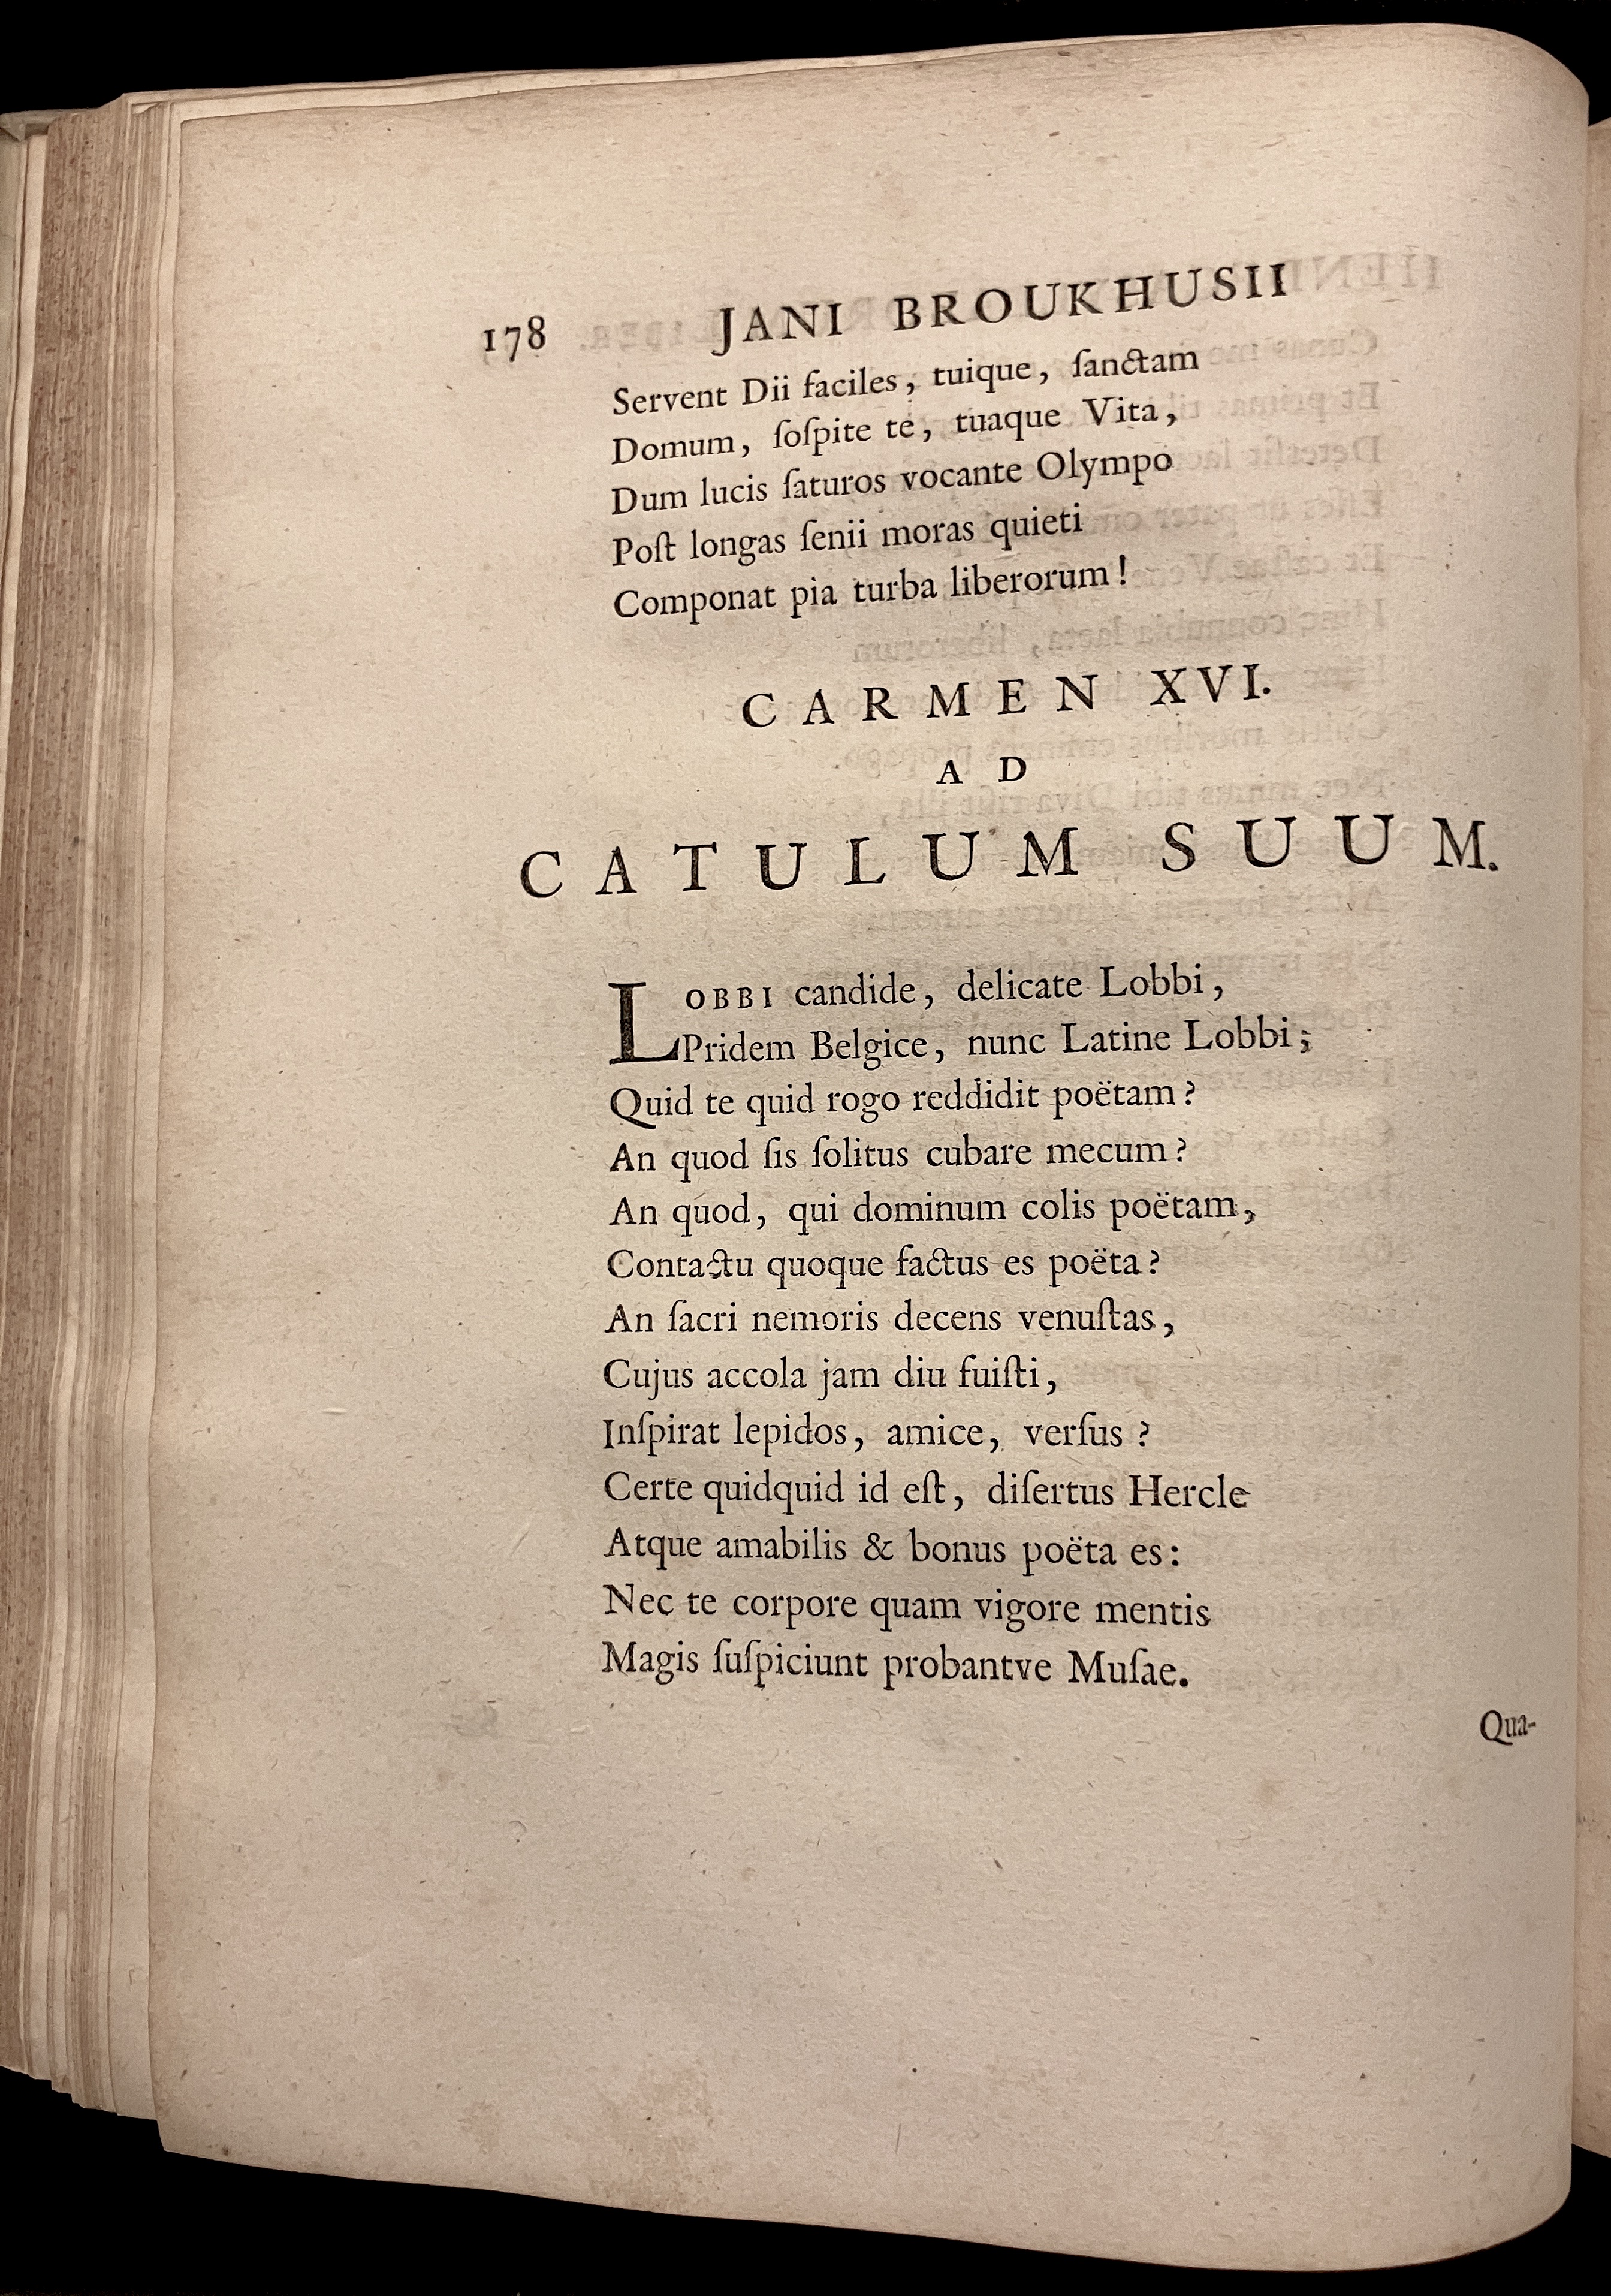 178 JANI BROUKHUSII
Servent Dii faciles, tuique, ſanctam
Domum, ſoſpite te, tuaque Vita,
Dum lucis ſaturos vocante Olympo
Poſt longas ſenii moras quieti
Componat pia turba liberorum!
CARMEN XVI.
AD
CATULUM SUUM.
LOBBI candide, delicate Lobbi,
Pridem Belgice, nunc Latine Lobbi;
Quid te quid rogo reddidit poëtam?
An quod ſis ſolitus cubare mecum?
An quod, qui dominum colis poëtam,
Contactu quoque factus es poëta?
An ſacri nemoris decens venuſtas,
Cujus accola jam diu fuiſti,
Inſpirat lepidos, amice, verſus?
Certe quidquid id eſt, diſertus Hercle
Atque amabilis & bonus poëta es:
Nec te corpore quam vigore mentis
Magis ſuſpiciunt probantve Muſae.
Qua-